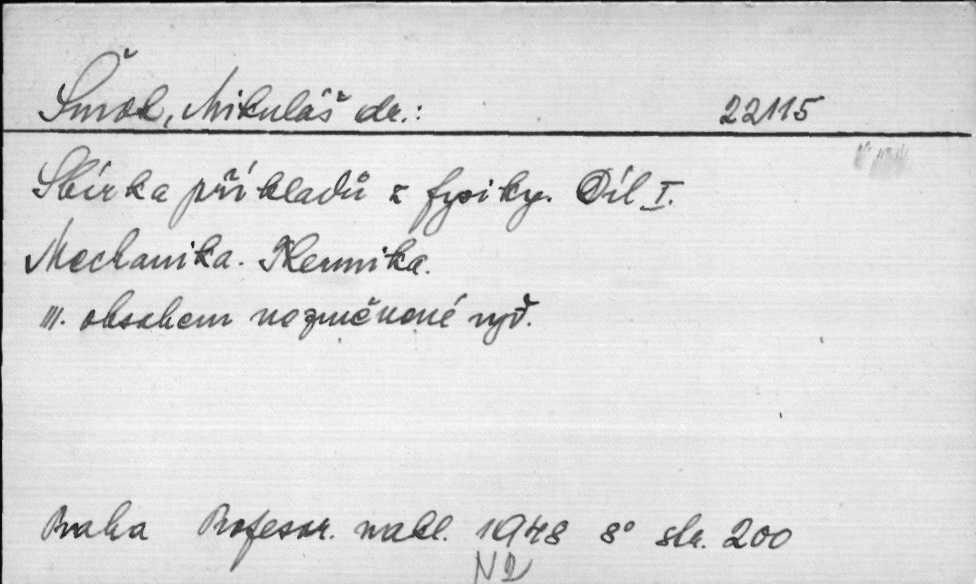 Šmok, Mikuláš dr.: 22115
Sbírka příkladů z fysiky. Díl I.
Mechanika. Thermika.
III. obsahem nezměněné vyd.
Praha Profesor. nakl. 1948 8° str. 200
N2